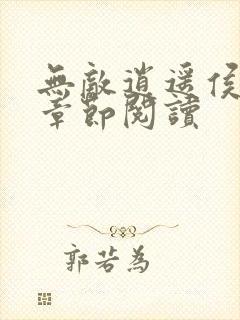 無敵逍遙侯
章節閱讀
郭若為